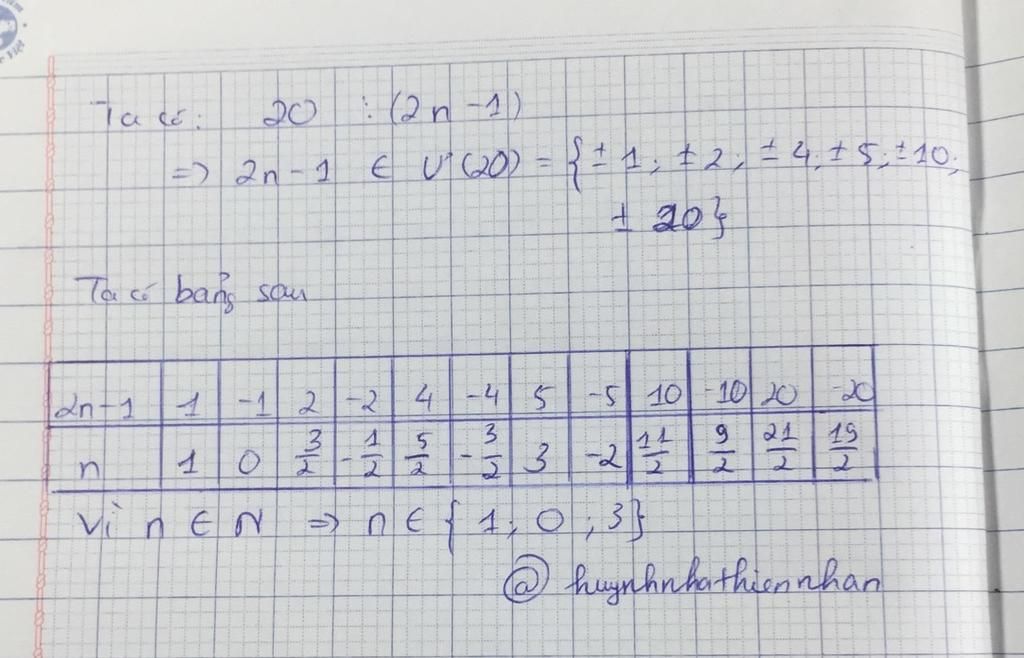 Ta có: 20 ⋮ (2n - 1)
=> 2n - 1 ∈ Ư(20) = {± 1; ± 2; ± 4; ± 5; ± 10;
± 20}
Ta có bảng sau
2n-1 1 -1 2 -2 4 -4 5 -5 10 -10 20 -20
n 1 0 3/2 -1/2 5/2 -3/2 3 -2 11/2 9/2 21/2 19/2
Vì n ∈ N => n ∈ {1; 0; 3}
@ huynhnhathiennhan